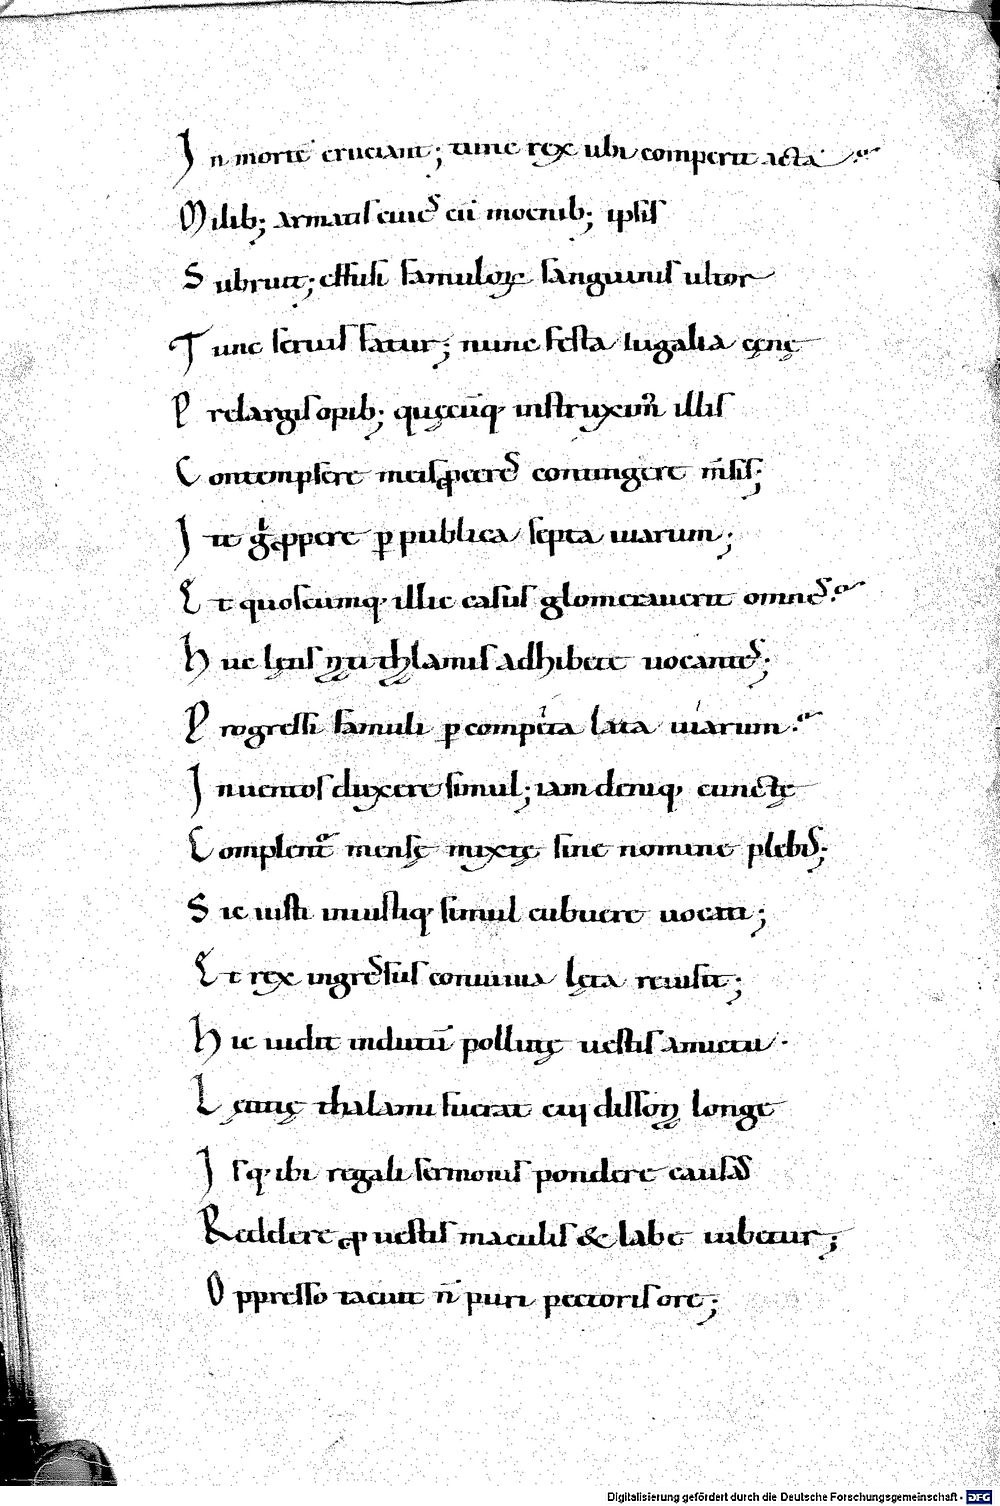 In morte cruciant; tunc rex ubi comperit acta
Milib; armatis ciues cū moenib; ipsis
Subruit; effusi famuloꝝ sanguinis ultor
Tunc seruis fatur; nunc festa iugalia cęnę
Prelargis opib; quęcūq; instruximꝰ illis
Contempsere meis ꝓceres contingere m̄sis;
Ite ꝓpere ꝑ publica septa uiarum;
Et quoscumq; illic casus glomerauerit omnes
Huc lętis thalamis adhibete uocantes;
Progressi famuli ꝑ compita lata uiarum
Inuentos duxere simul; iam deniq; cunctę
Complent᷑ mensę mixtę sine nomine plebis;
Sic iusti iniustiq; simul cubuere uocati;
Et rex ingressus conuiuia lęta reuisit;
Hic uidit indutū pollutę uestis amictu
Lętitię thalami fuerat longe
Isq; ibi regali sermonis pondere causas
Reddere ꝓ uestis maculis & labe iubetur;
Oppresso tacuit n̄ puri pectoris ore;
Digitalisierung gefördert durch die Deutsche Forschungsgemeinschaft - DFG